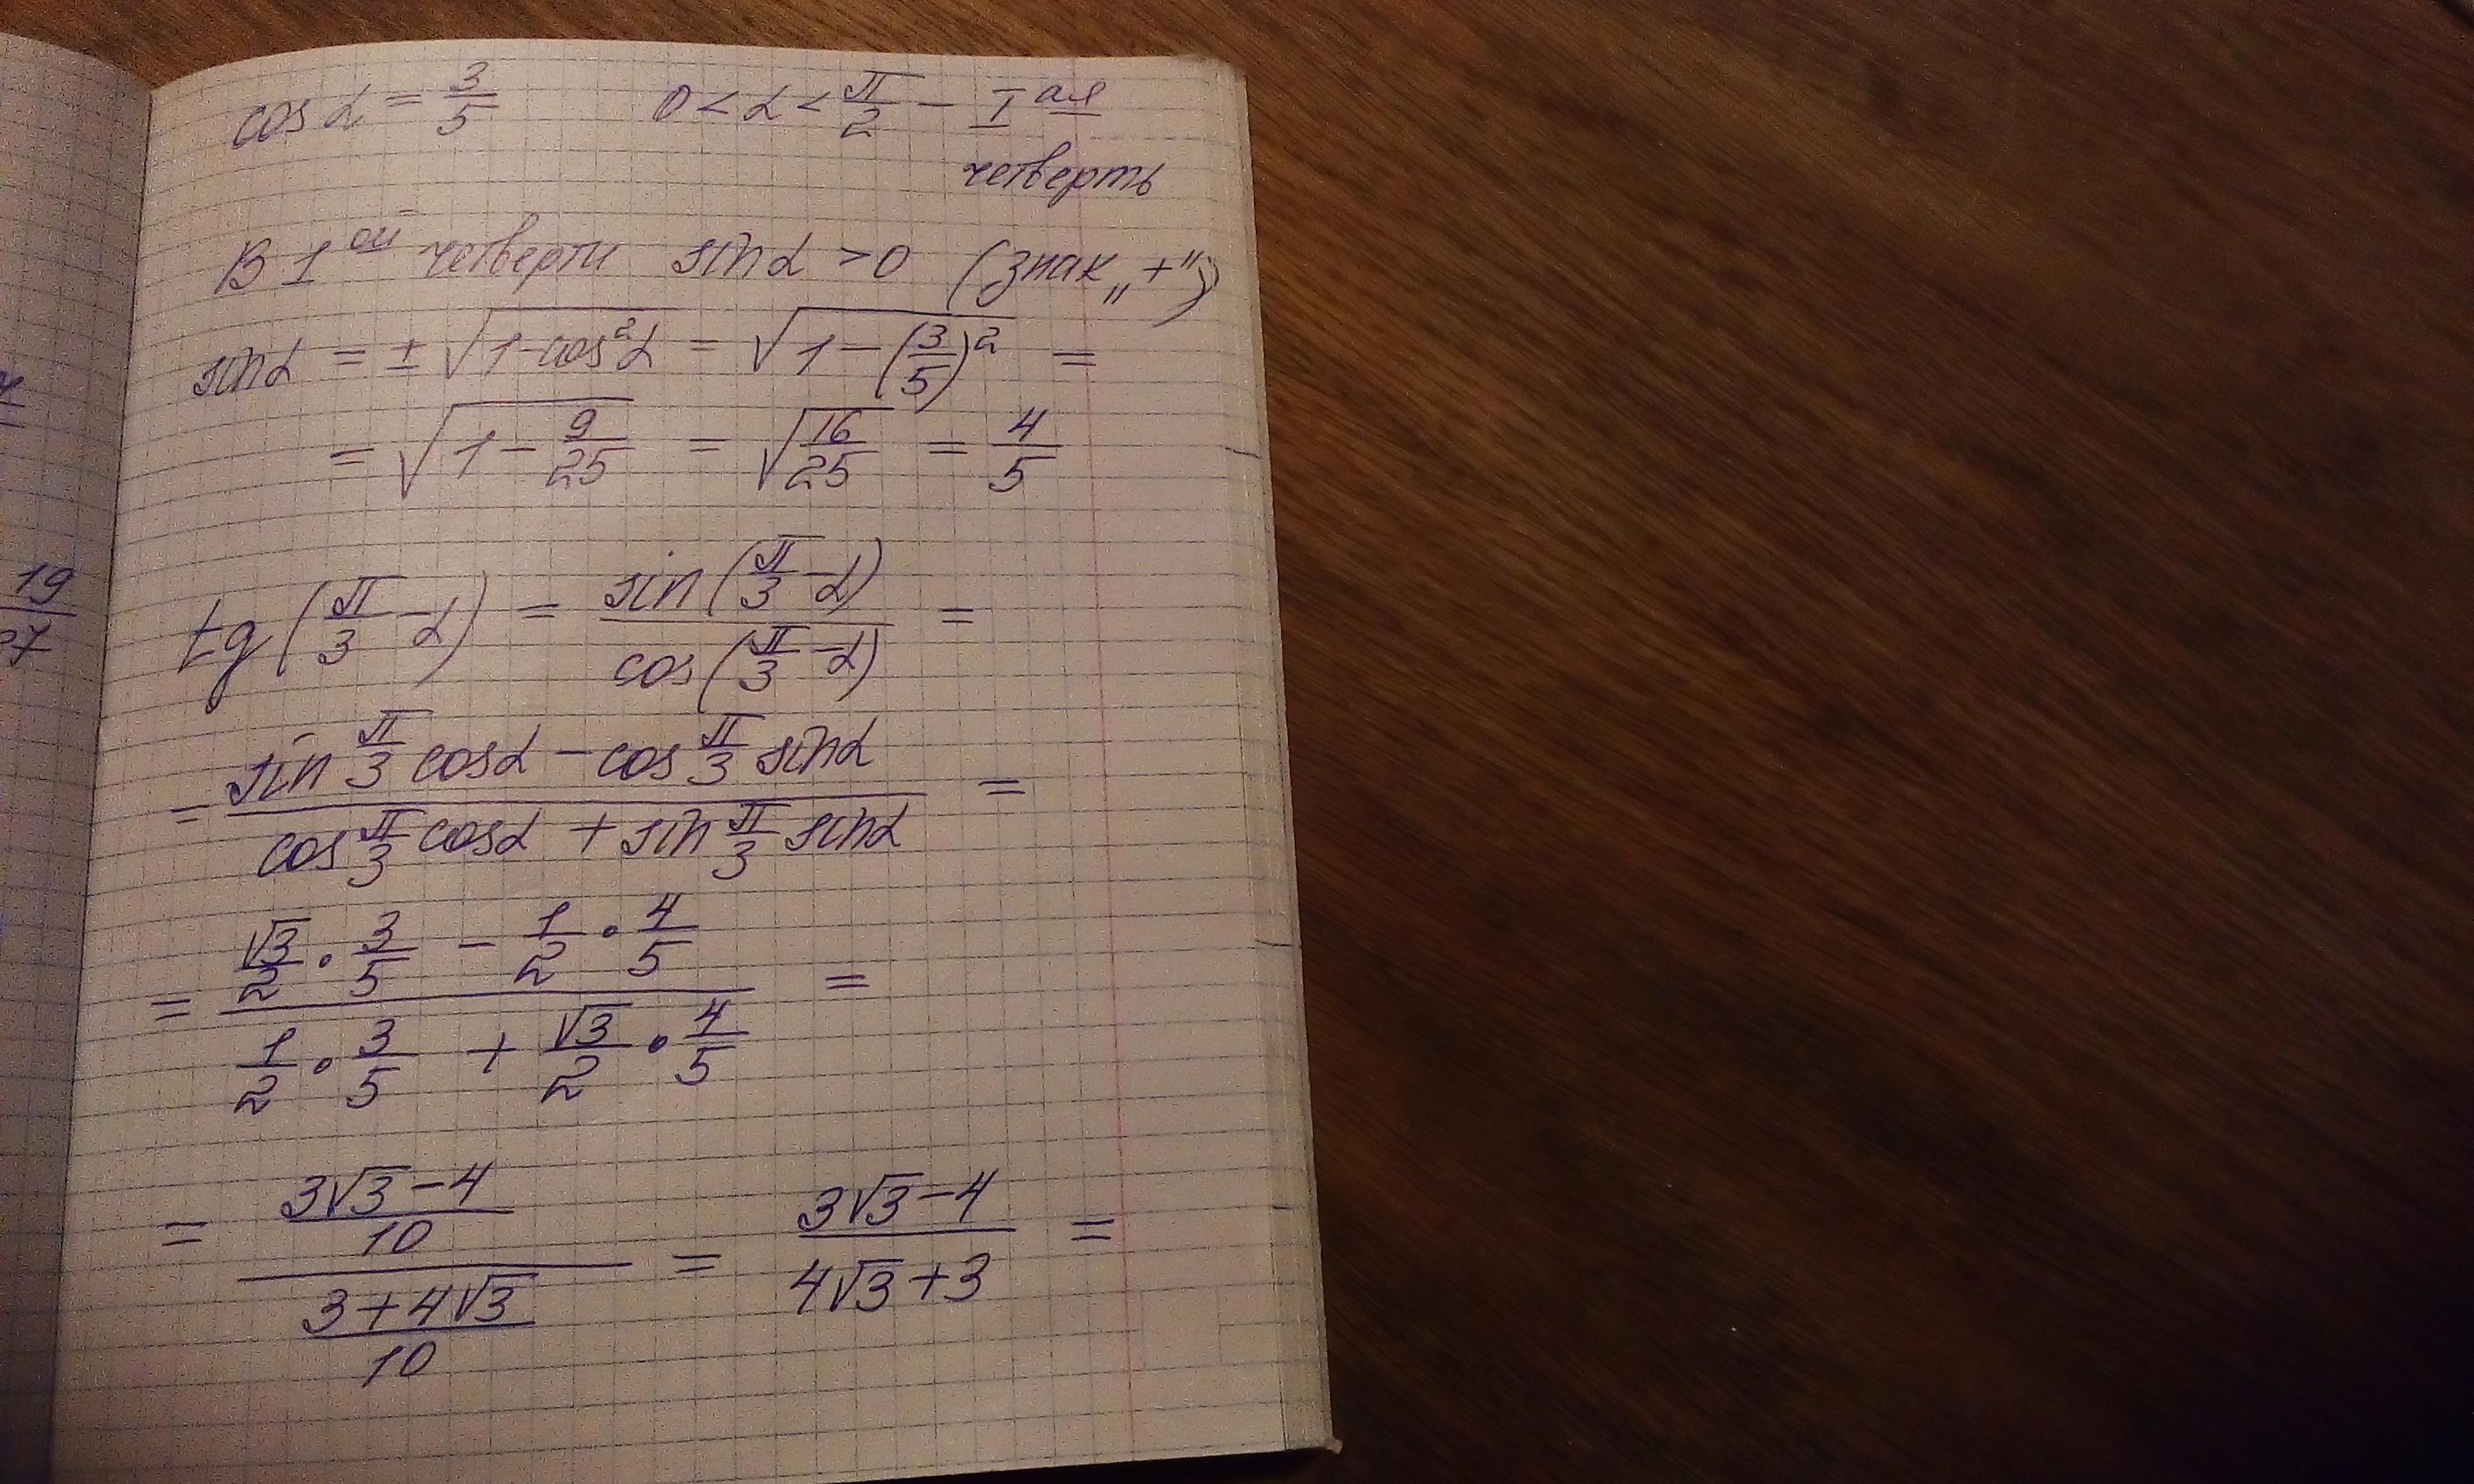 cos α = 3/5 0 < α < π/2 - I ая
четверть
В 1 ой четверти sin α > 0 (знак „+")
sin α = ± √(1-cos²α) = √(1-(3/5)²) =
= √(1 - 9/25) = √(16/25) = 4/5
tg (π/3 - α) = sin(π/3 - α) / cos(π/3 - α) =
= (sin π/3 cos α - cos π/3 sin α) / (cos π/3 cos α + sin π/3 sin α) =
= (√3/2 · 3/5 - 1/2 · 4/5) / (1/2 · 3/5 + √3/2 · 4/5) =
= ((3√3 - 4)/10) / ((3 + 4√3)/10) = (3√3 - 4) / (4√3 + 3) =
19